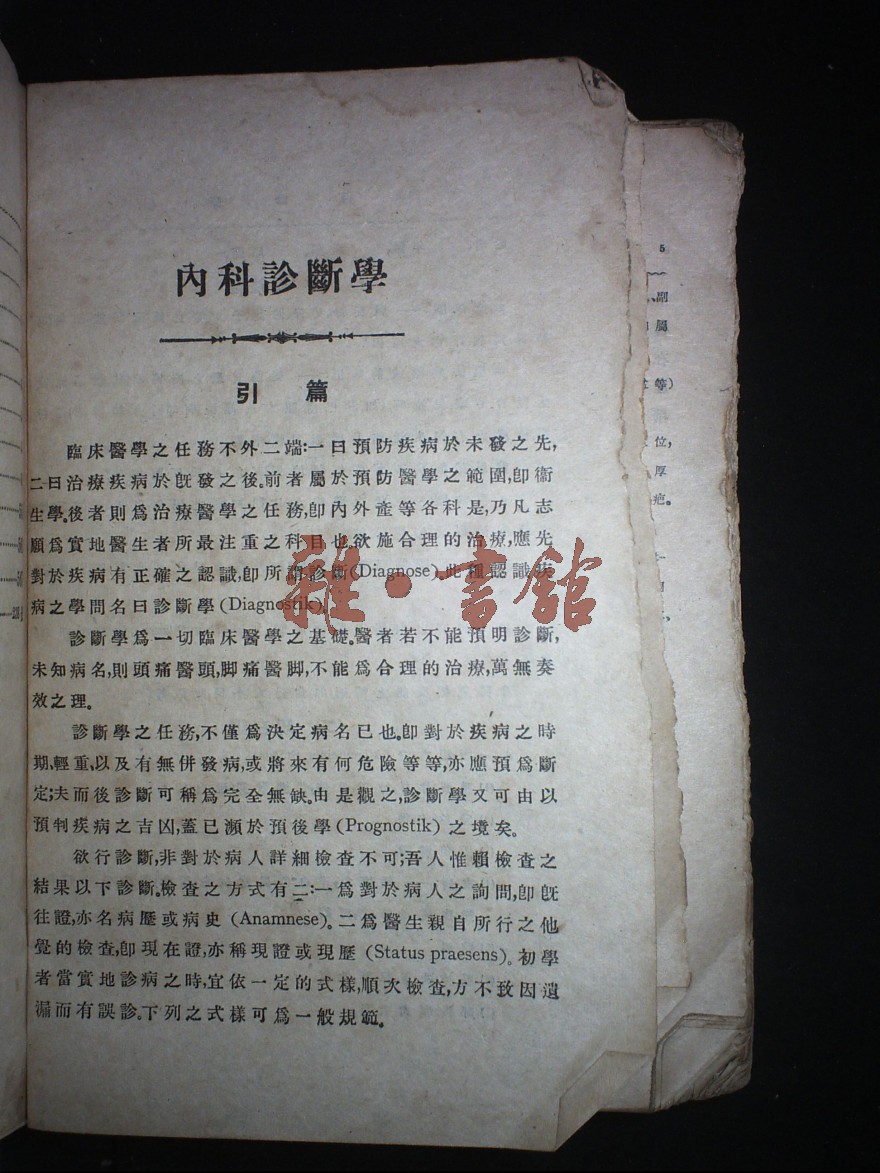 內科診斷學
引篇
臨床醫學之任務不外二端:一曰預防疾病於未發之先,
二曰治療疾病於旣發之後。前者屬於預防醫學之範圍,卽衞
生學。後者則爲治療醫學之任務,卽內外產等各科是,乃凡志
願爲實地醫生者所最注重之科目也。欲施合理的治療,應先
對於疾病有正確之認識,卽所謂診斷(Diagnose)。此種認識疾
病之學問名曰診斷學(Diagnostik)。
診斷學爲一切臨床醫學之基礎。醫者若不能預明診斷,
未知病名,則頭痛醫頭,脚痛醫脚,不能爲合理的治療,萬無奏
效之理。
診斷學之任務,不僅爲決定病名已也。卽對於疾病之時
期、輕重、以及有無併發病,或將來有何危險等等,亦應預爲斷
定;夫而後診斷可稱爲完全無缺。由是觀之,診斷學又可由以
預判疾病之吉凶,蓋已瀕於預後學(Prognostik)之境矣。
欲行診斷,非對於病人詳細檢查不可;吾人惟賴檢查之
結果以下診斷。檢查之方式有二:一爲對於病人之詢問,卽旣
往證,亦名病歷或病史(Anamnese)。二爲醫生親自所行之他
覺的檢查,卽現在證,亦稱現證或現歷(Status praesens)。初學
者當實地診病之時,宜依一定的式樣,順次檢查,方不致因遺
漏而有誤診。下列之式樣可爲一般規範。
雜·書館
5
副
屬
等)
位,
厚
疤。